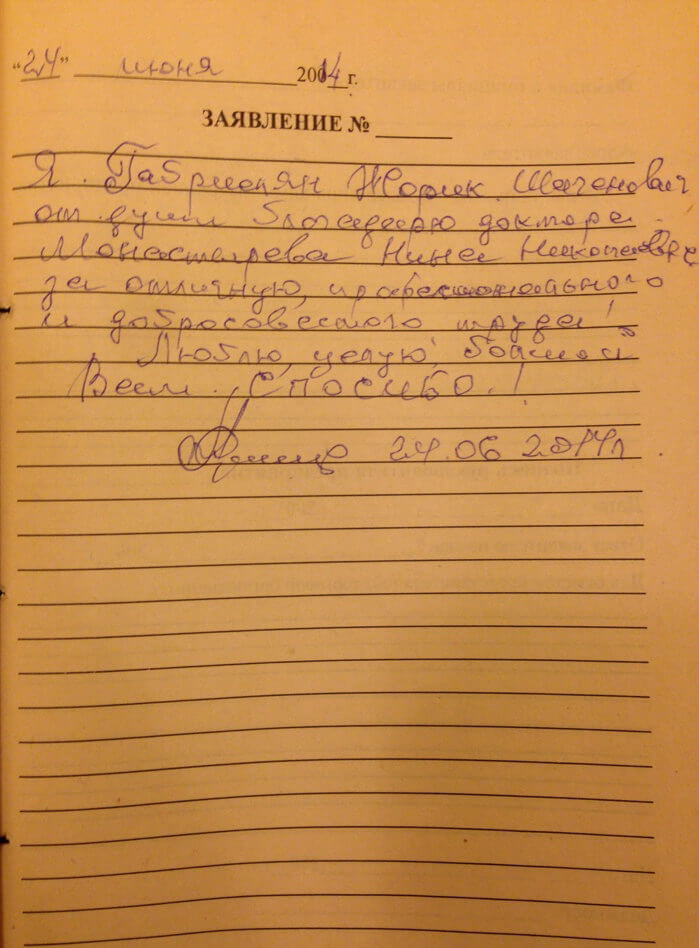 "24" июня 2014 г.
ЗАЯВЛЕНИЕ №
Я Габриелян Жорик Шагенович
от души благодарю доктора
Монастырева Нина Николаевна
за отличную, профессионального
и добросовестого труда!
Люблю, целую, большой
Вам СПОСИБО!
24.06 2014г